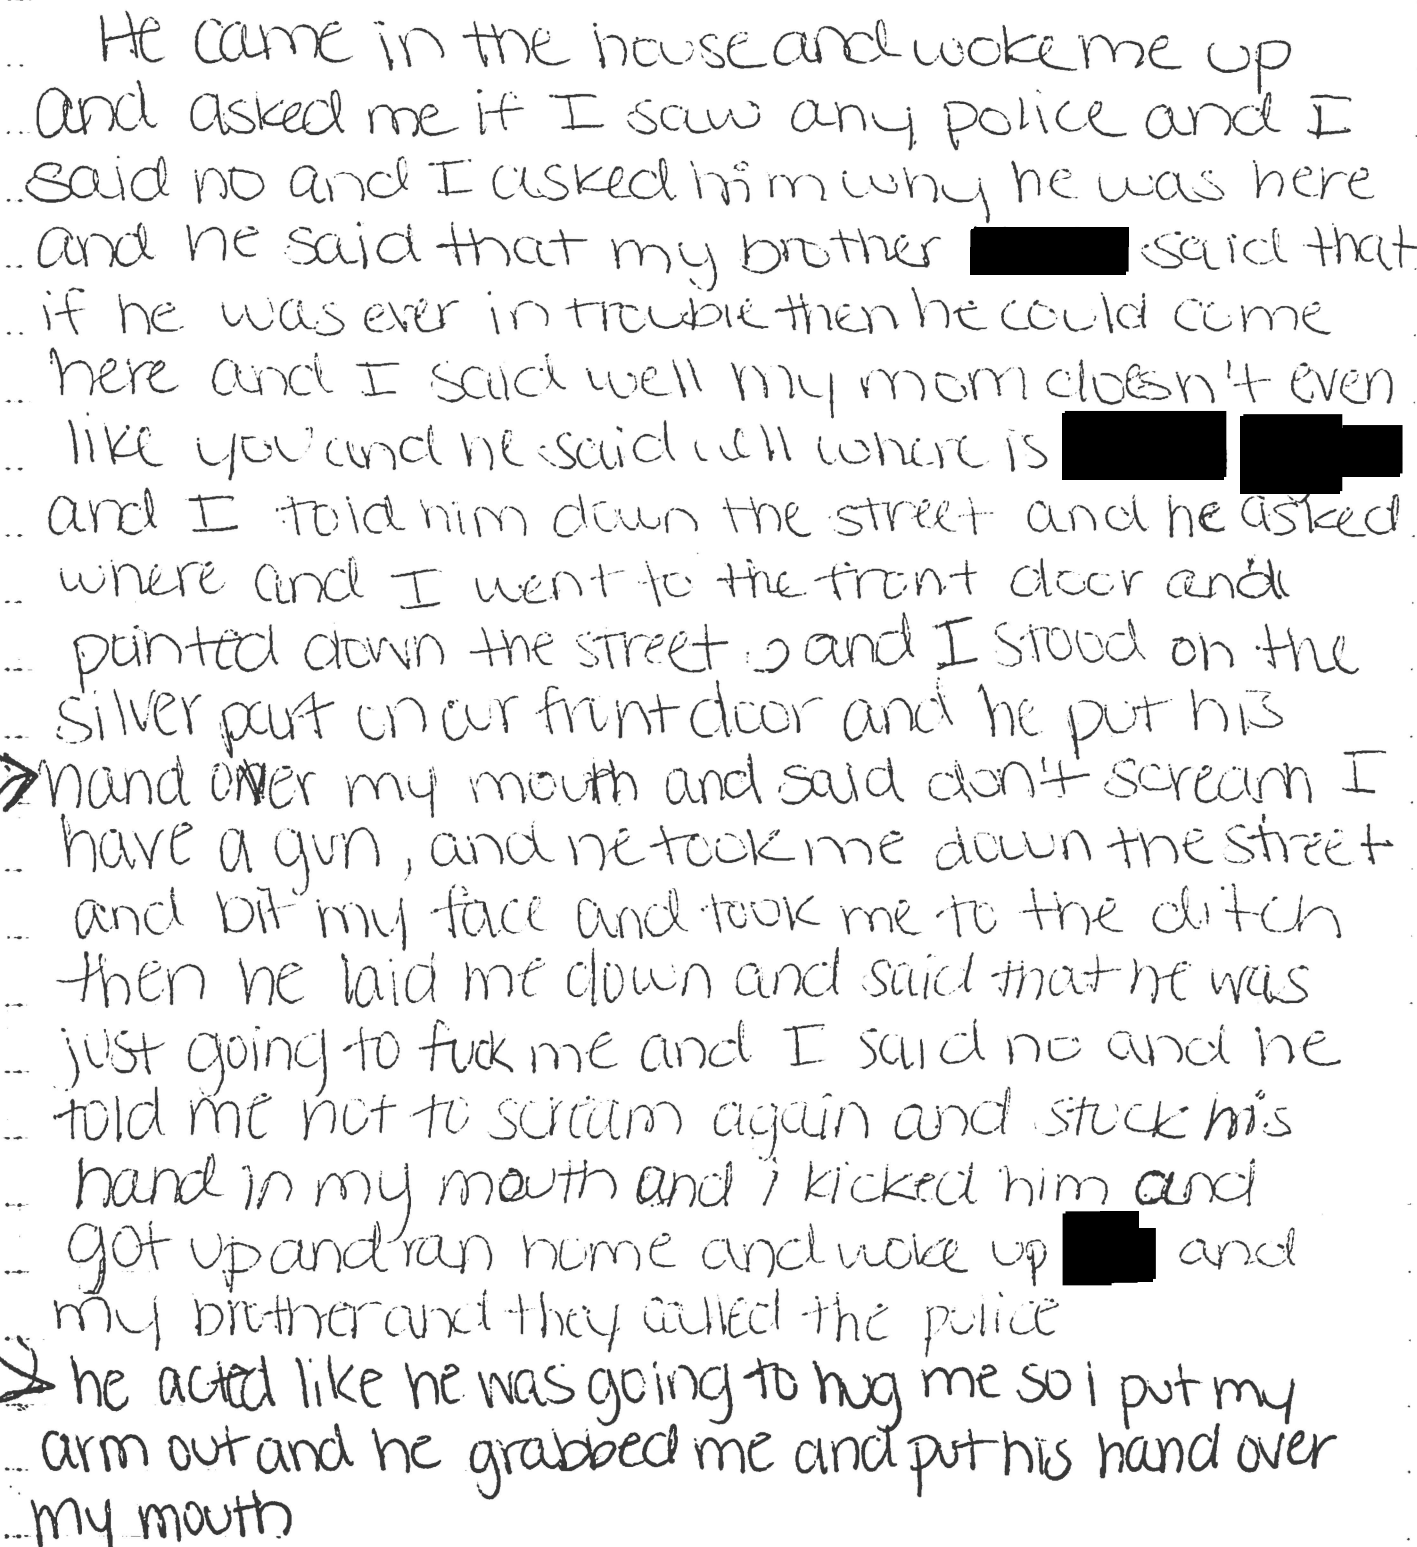 He came in the house and woke me up
and asked me if I saw any police and I
said no and I asked him why he was here
and he said that my brother said that
if he was ever in trouble then he could come
here and I said well my mom doesn't even
like you and he said well where is
and I told him down the street and he asked
where and I went to the front door and
pointed down the street, and I stood on the
silver part on our front door and he put his
hand over my mouth and said don't scream I
have a gun, and he took me down the street
and bit my face and took me to the ditch
then he laid me down and said that he was
just going to fuck me and I said no and he
told me not to scream again and stuck his
hand in my mouth and i kicked him and
got up and ran home and woke up and
my brother and they called the police
he acted like he was going to hug me so i put my
arm out and he grabbed me and put his hand over
my mouth